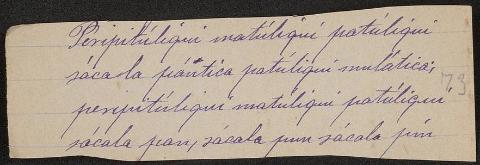 Peripitúliqui matúliqui patúliqui
sácala pántica patúliqui mulática;
peripitúliqui matúliqui patúliqui,
sacala pan, sácala pun sácala pin
73